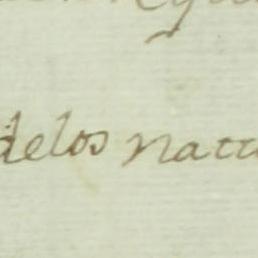 delos natu